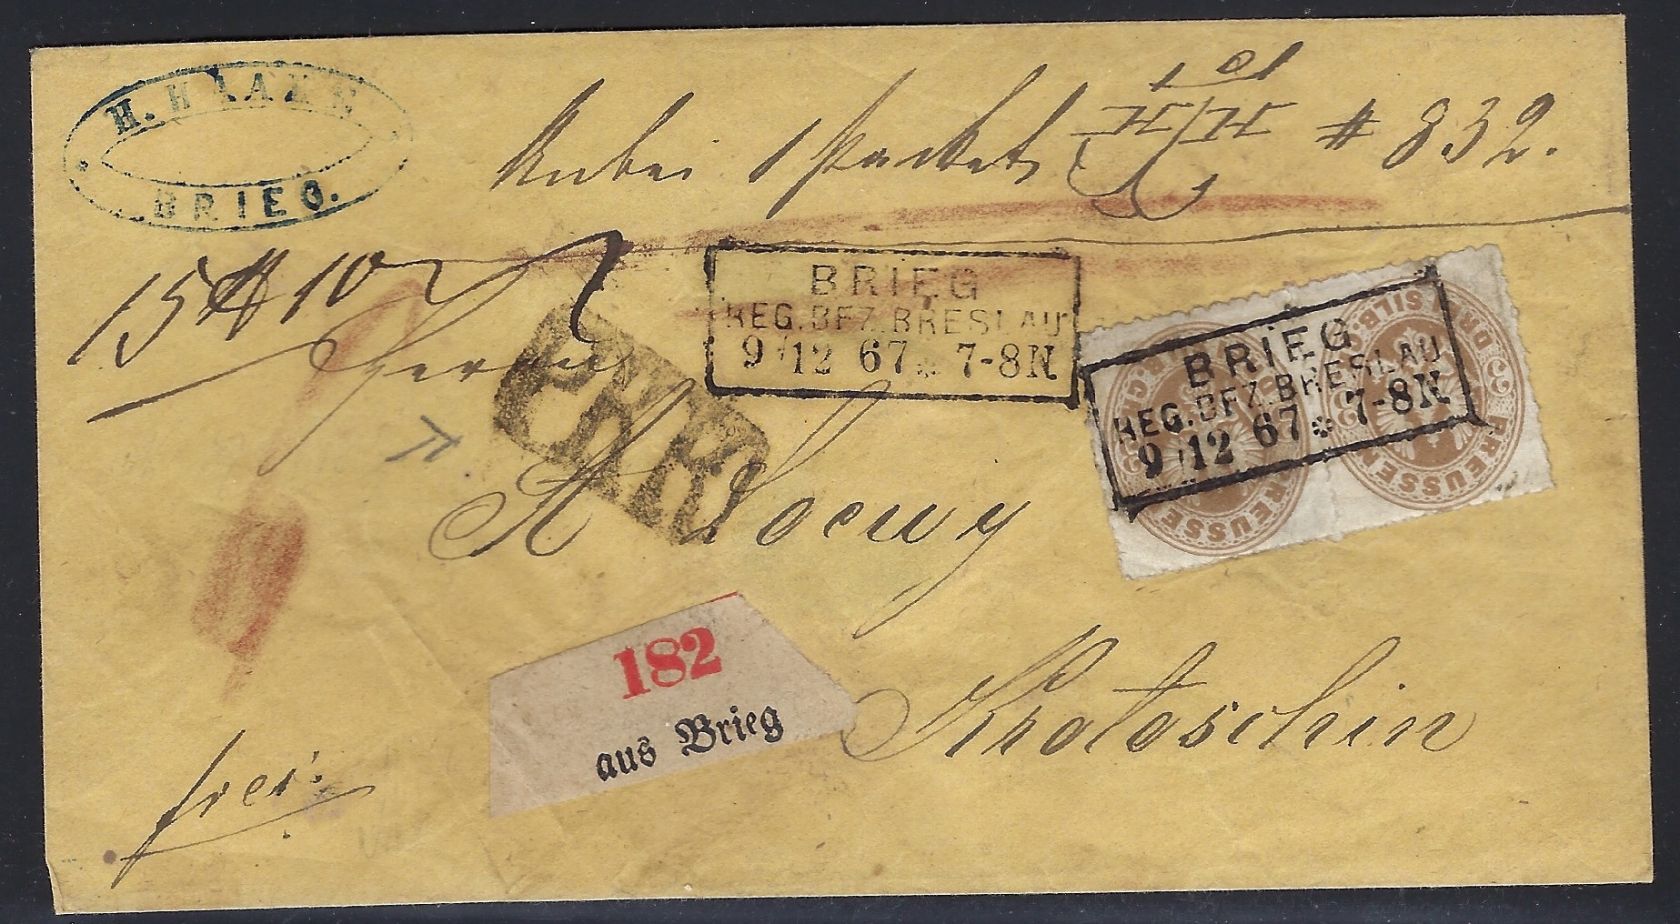 H. HAAKE
BRIEG.
Anbei 1 Packet H/H # 832.
15 ℔ 10
BRIEG
REG. BEZ. BRESLAU
9/12 67 * 7-8N
BRIEG
REG. BEZ. BRESLAU
9/12 67 * 7-8N
PREUSSEN
DREI SILB. GR.
3
PREUSSEN
Herrn
A Loewy
182
aus Brieg
Krotoschin
frei.